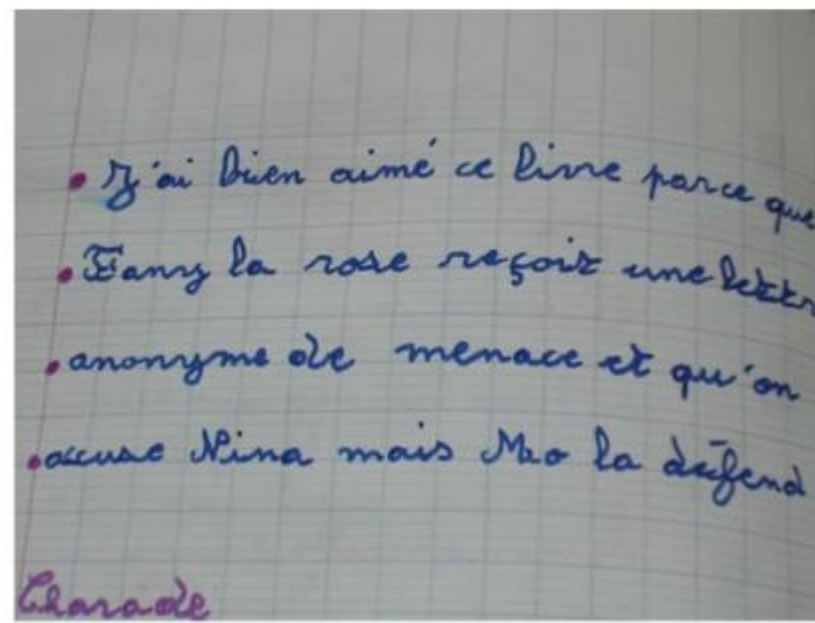 J'ai bien aimé ce livre parce que
Fany la rose reçoit une lettr
anonyme de menace et qu'on
accuse Nina mais Mo la défend
Charade